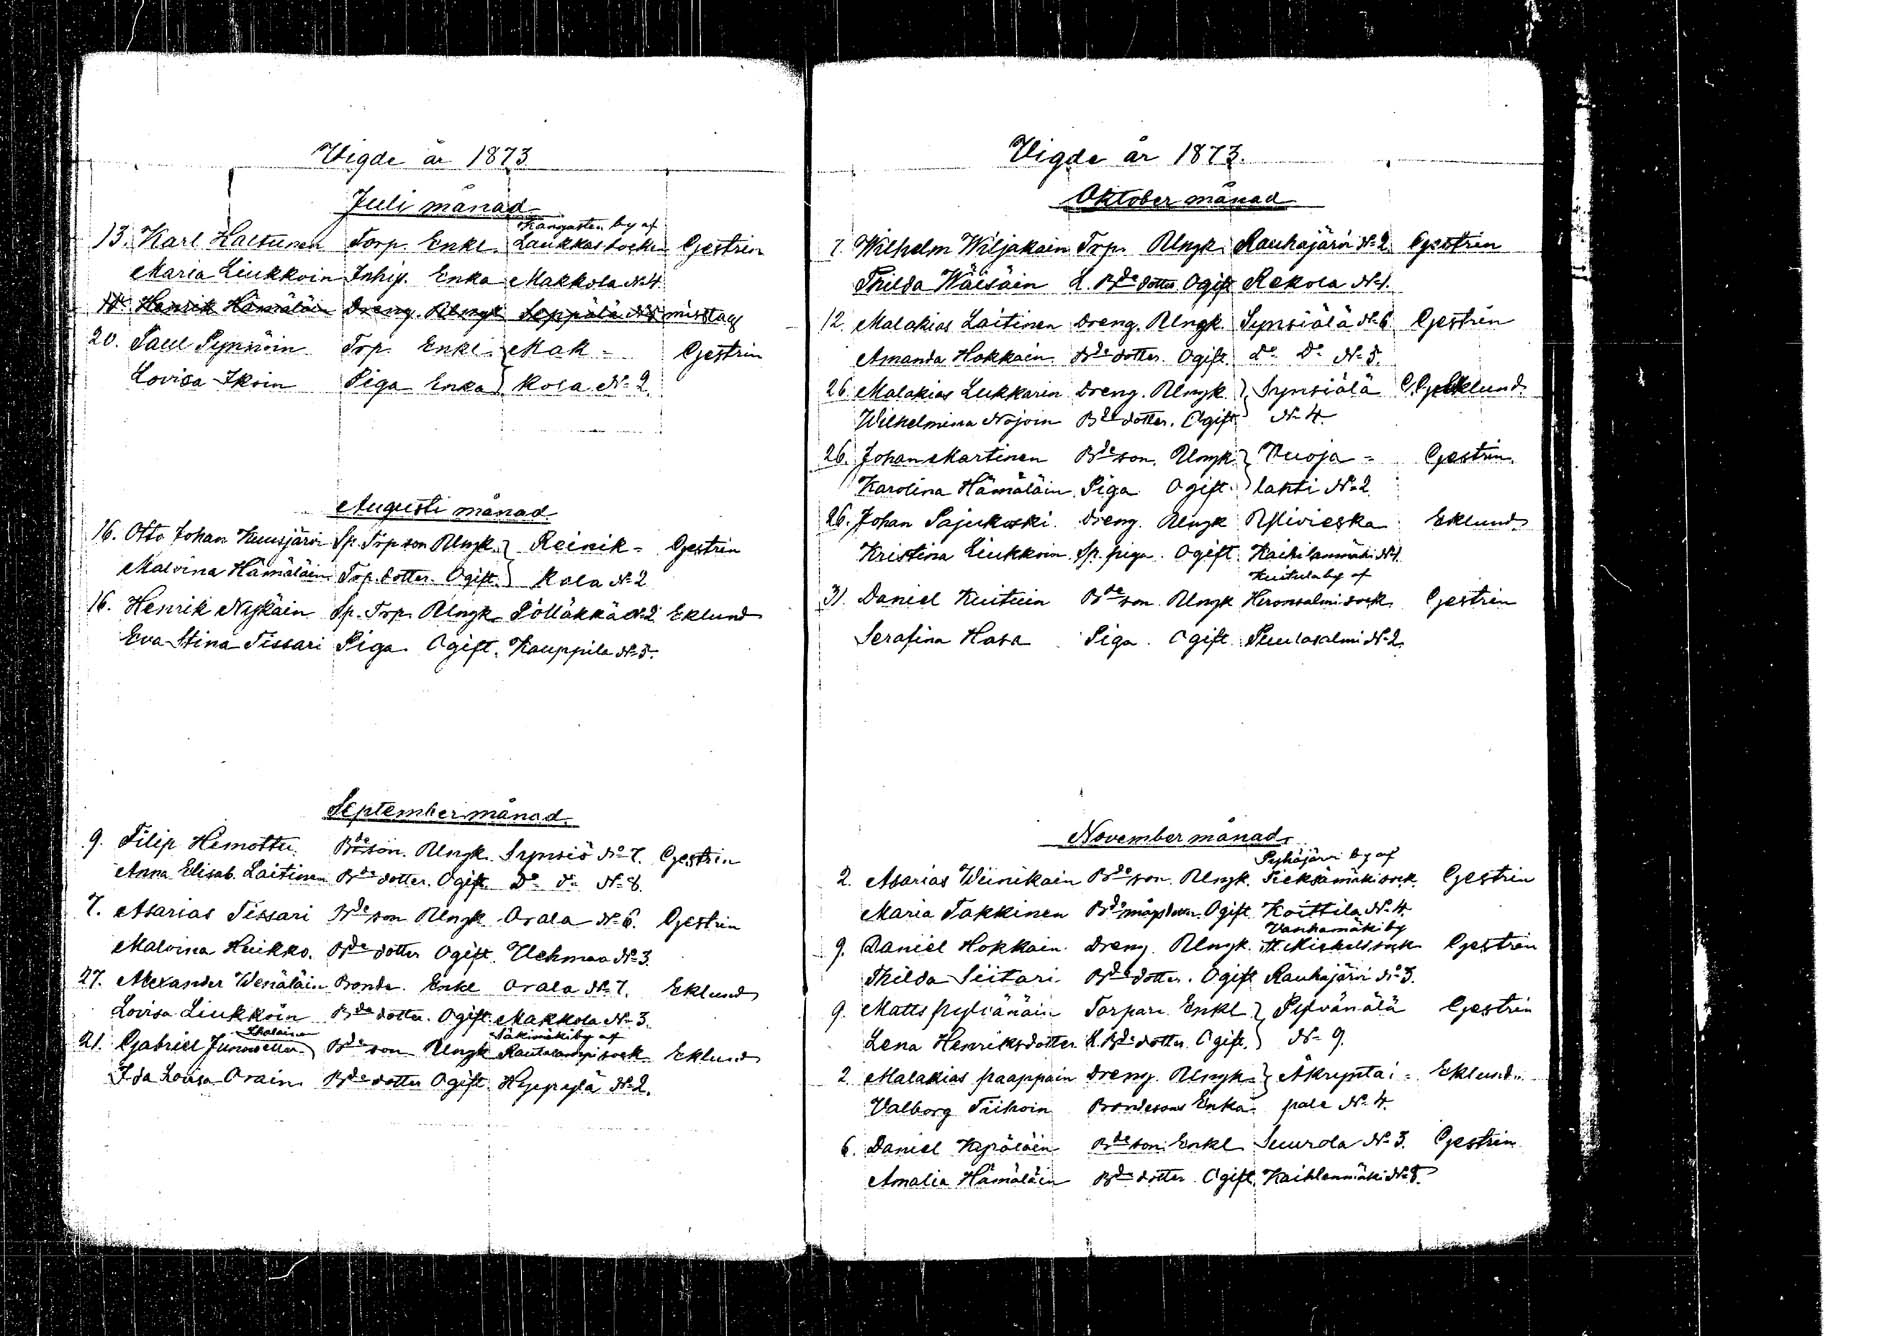 Vigde år 1873.
Juli månad
Kangasten by af
13. Karl Haltunen Torp. Enkl. Laukkas socken Gestrin
Maria Liukkoin Inhys. Enka Makkola No 4.
14. Henrik Hämäläin Dreng. Ungk Seppälä No 5 misstag
20. Paul Synnöin Trp. Enkl. } Mak- Gestrin
Lovisa Ikoin Piga Enka } kola No 2.
Augusti månad
16. Otto Johan Kuusjärvi Sp. Trp son Ungk. } Reinik- Gestrin
Malvina Hämäläin Trp. dotter. Ogift. } kala No 2
16. Henrik Nykäin Sp. Trp. Ungk. Pölläkkä No 2 Eklund
Eva Stina Tissari Piga Ogift. Kauppila No 5.
September månad.
9. Filip Hemottu. Bde son. Ungk. Synsiö No 7. Gestrin
Anna Elisab. Laitinen Bde dotter. Ogift. Do do No 8.
7. Asarias Tissari Bde son Ungk Orala No 6. Gestrin
Malvina Huikko. Bde dotter Ogift. Uchmaa No 3.
27. Alexander Wenäläin Bonde. Enkl Orala No 7. Eklund
Lovisa Liukkoin Bde dotter. Ogift. Makkola No 3.
Säkimäki by af
21. Gabriel Bde son Ungk Rautalampi sock. Eklund
Ida Lovisa Orain Bde dotter Ogift. Hyppylä No 2.
Vigde år 1873.
Oktober månad
7. Wilhelm Wiljakain Trp. Ungk. Rauhajärvi No 2. Gestrin
Thilda Wäisäin L. Bde dotter Ogift Rekola No 1.
12. Malakias Laitinen Dreng. Ungk. Synsiälä No 6 Gestrin
Amanda Hokkain Bde dotter. Ogift. Do Do No 5.
26 Malakias Lukkarin Dreng. Ungk. } Synsiälä Eklund.
Wilhelmina Nojoin Bde dotter. Ogift } No 4.
26. Johan Martinen Bde son. Ungk } Vuoja- Gestrin.
Karolina Hämäläin Piga Ogift. } lahti No 2
26. Johan Pajukoski Dreng. Ungk Ylivieska Eklund
Kristina Liukkoin Sp. piga. Ogift. Kaihlanmäki No 1.
Kuitula by af
31. Daniel Kuituin Bde son. Ungk Hironsalmi sock. Gestrin
Serafina Hasa Piga. Ogift. Puulasalmi No 2.
November månad.
Pyhäjärvi by af
2. Asarias Wiinikain Bde son. Ungk. Pieksämäki sock. Gestrin
Maria Takkinen Ogift. Koittila No 4.
Vanhamäki by
9. Daniel Hokkain Dreng. Ungk. St Mickels sock Gestrin
Thilda Siitari Bde dotter. Ogift Rauhajärvi No 3.
9. Matts pylvänäin Torpare Enkl } Pylvänälä Gestrin
Lena Henriksdotter L. Bde dotter. Ogift. } No 9.
2. Malakias paappain Dreng. Ungk. } Åkrynta- Eklund.
Valborg Tiihoin Bondesons Enka pale No 4.
6. Daniel Kyöläin Bde son. Enkl Suurola No 3. Gestrin
Amalia Hämäläin Bde dotter. Ogift. Kaihlenmäki No 8.